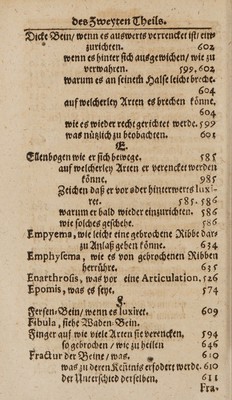 des Zweyten Theils.
Dicke Bein/ wenn es auswerts verrencket ist/ ein-
zurichten. 602
wenn es hinter sich ausgewichen/ wie zu
verwahren. 599. 602
warum es an seineth Halse leicht breche.
604
auf welcherley Arten es brechen könne.
604
wie es wieder recht gerichtet werde. 599
was nüzlich zu beobachten. 601
E.
Ellenbogen wie er sich bewege. 585
auf welcherley Arten er verencket werden
könne. 985
Zeichen daß er vor oder hinterwerts luxi-
ret. 585. 586
warum er bald wieder einzurichten. 586
wie solches geschehe. 586
Empyema, wie leicht eine gebrochene Ribbe dar-
zu Anlaß geben könne. 634
Emphysema, wie es von gebrochenen Ribben
herrühre. 635
Enarthrosis, was vor eine Articulation. 526
Epomis, was es seye. 574
F.
Fersen-Bein/ wenn es luxiret. 609
Fibula, siehe Waden-Bein.
Finger auf wie viele Arten sie verencken. 594
so gebrochen/ wie zu heilen 646
Fractur der Beine/ was. 610
was zu deren Känntnis erfodere werde. 610
der Unterschied derselben. 611
Fra-